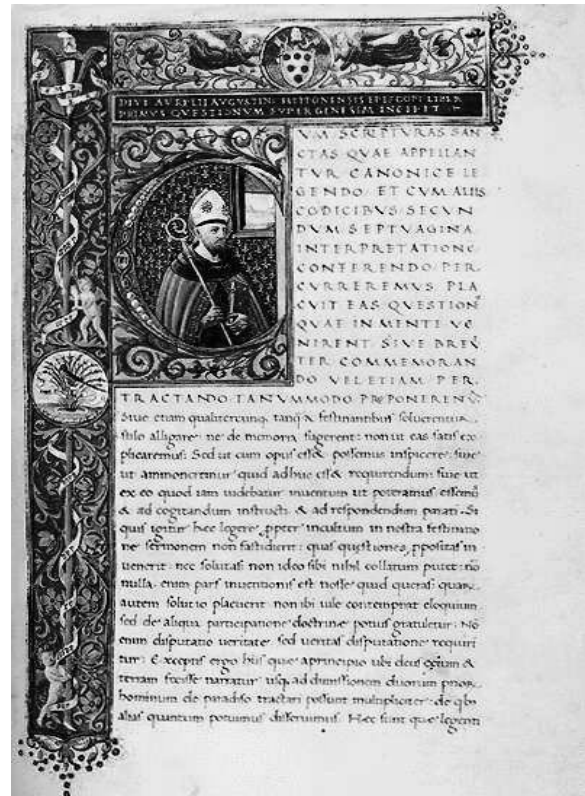 DIVI AVRELII AVGVSTINI HIPPONENSIS EPISCOPI LIBER
PRIMVS QVESTIONVM SVPER GENESIM INCIPIT
VM SCRIPTVRAS SAN
CTAS QVAE APPELLAN
TVR CANONICE LE
GENDO ET CVM ALIIS
CODICIBVS SECVN
DVM SEPTVAGINA
INTERPRETATIONE
CONFERENDO PER
CVRREREMVS PLA
CVIT EAS QVESTION
QVAE IN MENTE VE
NIRENT SIVE BREV
TER COMMEMORAN
DO VEL ETIAM PER
TRACTANDO TANVMMODO PROPONERENT
Siue etiam qualitercunq tanq festinantibus soluerentur
stilo alligare ne de memoria fugerent: non ut eas satis ex
plicaremus: Sed ut cum opus ess& possemus inspicere: siue
ut ammoneremur quid adhuc ess& requirendum: siue ut
ex eo quod iam uidebatur inuentum ut poteramus essemus
& ad cogitandum instructi & ad respondendum parati. Si
quis igitur hec legere ppter incultum in nostra festinatio
ne sermonem non fastidierit: quas questiones ppositas in
uenerit: nec solutas non ideo sibi nihil collatum putet: nō
nulla enim pars inuentionis est nosse quid queras: quar
autem solutio placuerit non ibi uile contemnat eloquium
sed de aliqua participatione doctrine potius gratuletur: Nō
enim disputatio ueritate sed ueritas disputatione requiri
tur: Exceptis ergo his que aprincipio ubi deus celum &
terram fecisse narratur usq ad dimissionem duorum prior
hominum de paradiso tractari possunt multipliciter: de qbs
alias quantum potuimus disseruimus. Hec sunt que legenti